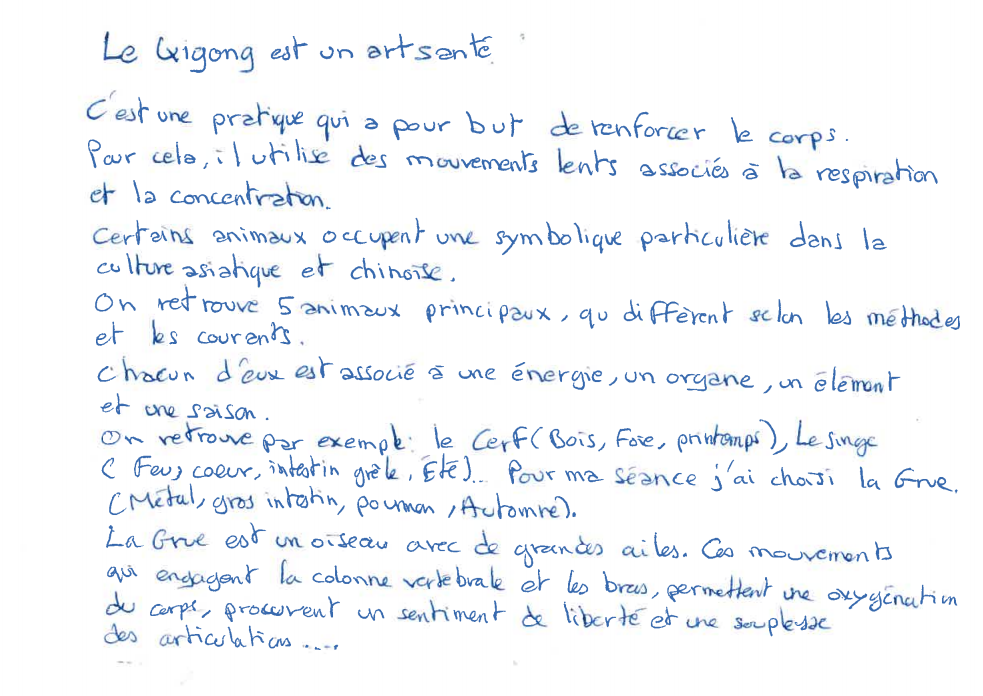 Le Qigong est un art santé
C'est une pratique qui a pour but de renforcer le corps.
Pour cela, il utilise des mouvements lents associés à la respiration
et la concentration.
Certains animaux occupent une symbolique particulière dans la
culture asiatique et chinoise.
On retrouve 5 animaux principaux, qu diffèrent selon les méthodes
et les courants.
Chacun d'eux est associé à une énergie, un organe, un élément
et une saison.
On retrouve par exemple: le Cerf (Bois, Foie, printemps), Le singe
( Feu, coeur, intestin grêle, Eté)... Pour ma séance j'ai choisi la Grue.
(Métal, gros intestin, poumon, Automne).
La Grue est un oiseau avec de grandes ailes. Ces mouvements
qui engagent la colonne vertebrale et les bras, permettent une oxygénation
du corps, procurent un sentiment de liberté et une souplesse
des articulations .....